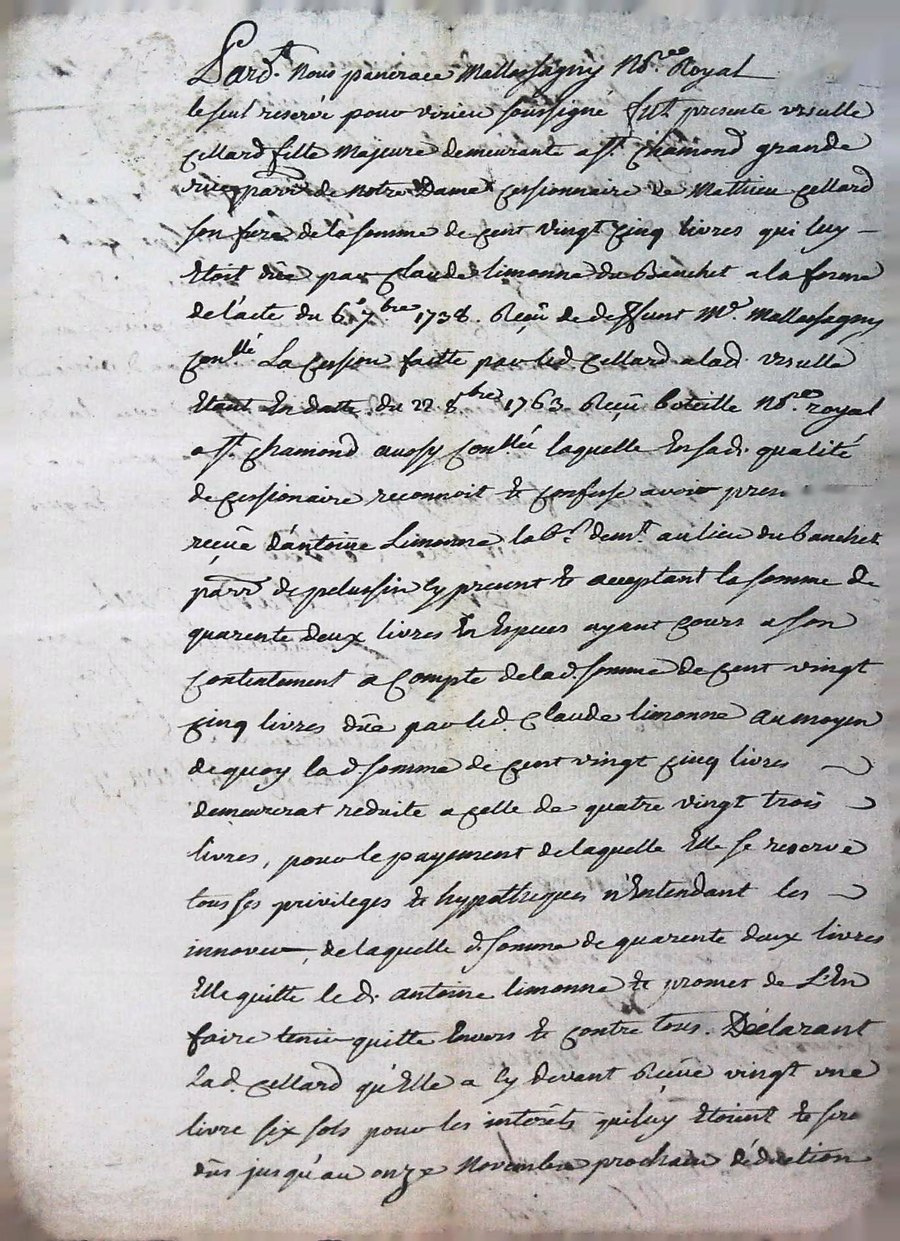 Pard.t Nous pancrace Mallassagny No.re Royal
le seul reservé pour virieu soussigné fut presente ursulle
Cellard fille Majeure demeurante a st. chamond grande
rue parr. de notre Dame cessionnaire de Mathieu Cellard
son frere de la somme de cent vingt cinq livres qui luy
Etoit dûe par Claude limonne du Banchet a la forme
de l'acte du 6.e 7bre 1738. Reçû de deffunt Me. Mallassagny
Con.llé La Cession faitte par led. Cellard a lad. ursulle
Etant En datte du 22 8bre 1763 Reçû boteille No.re royal
a st. chamond aussy Con.llé laquelle En sa d. qualité
de cessionaire reconnoit & confesse avoir presen
reçûe d'antoine Limonne lab.r dem.t au lieu du banchet
parr. de pelussin Cy present & acceptant la somme de
quarente deux livres En Especes ayant Cours a son
Contentement a Compte de la d. somme de cent vingt
cinq livres dûe par led. Claude limonne au moyen
de quoy la d. somme de cent vingt cinq livres
demeurerat reduite a celle de quatre vingt trois
livres, pour le payement de laquelle Elle se reserve
tous ses privileges & hypotheques n'Entendant les
innover, de laquelle d. somme de quarente deux livres
Elle quitte le d. antoine limonne & promet de L'En
faire tenir quitte Envers & contre tous. Déclarant
Lad. Cellard qu'Elle a Cy devant Reçûe vingt une
livre six sols pour les interêts qui luy Etoient & sero
dûs jusqu'au onze Novembre prochain déduction